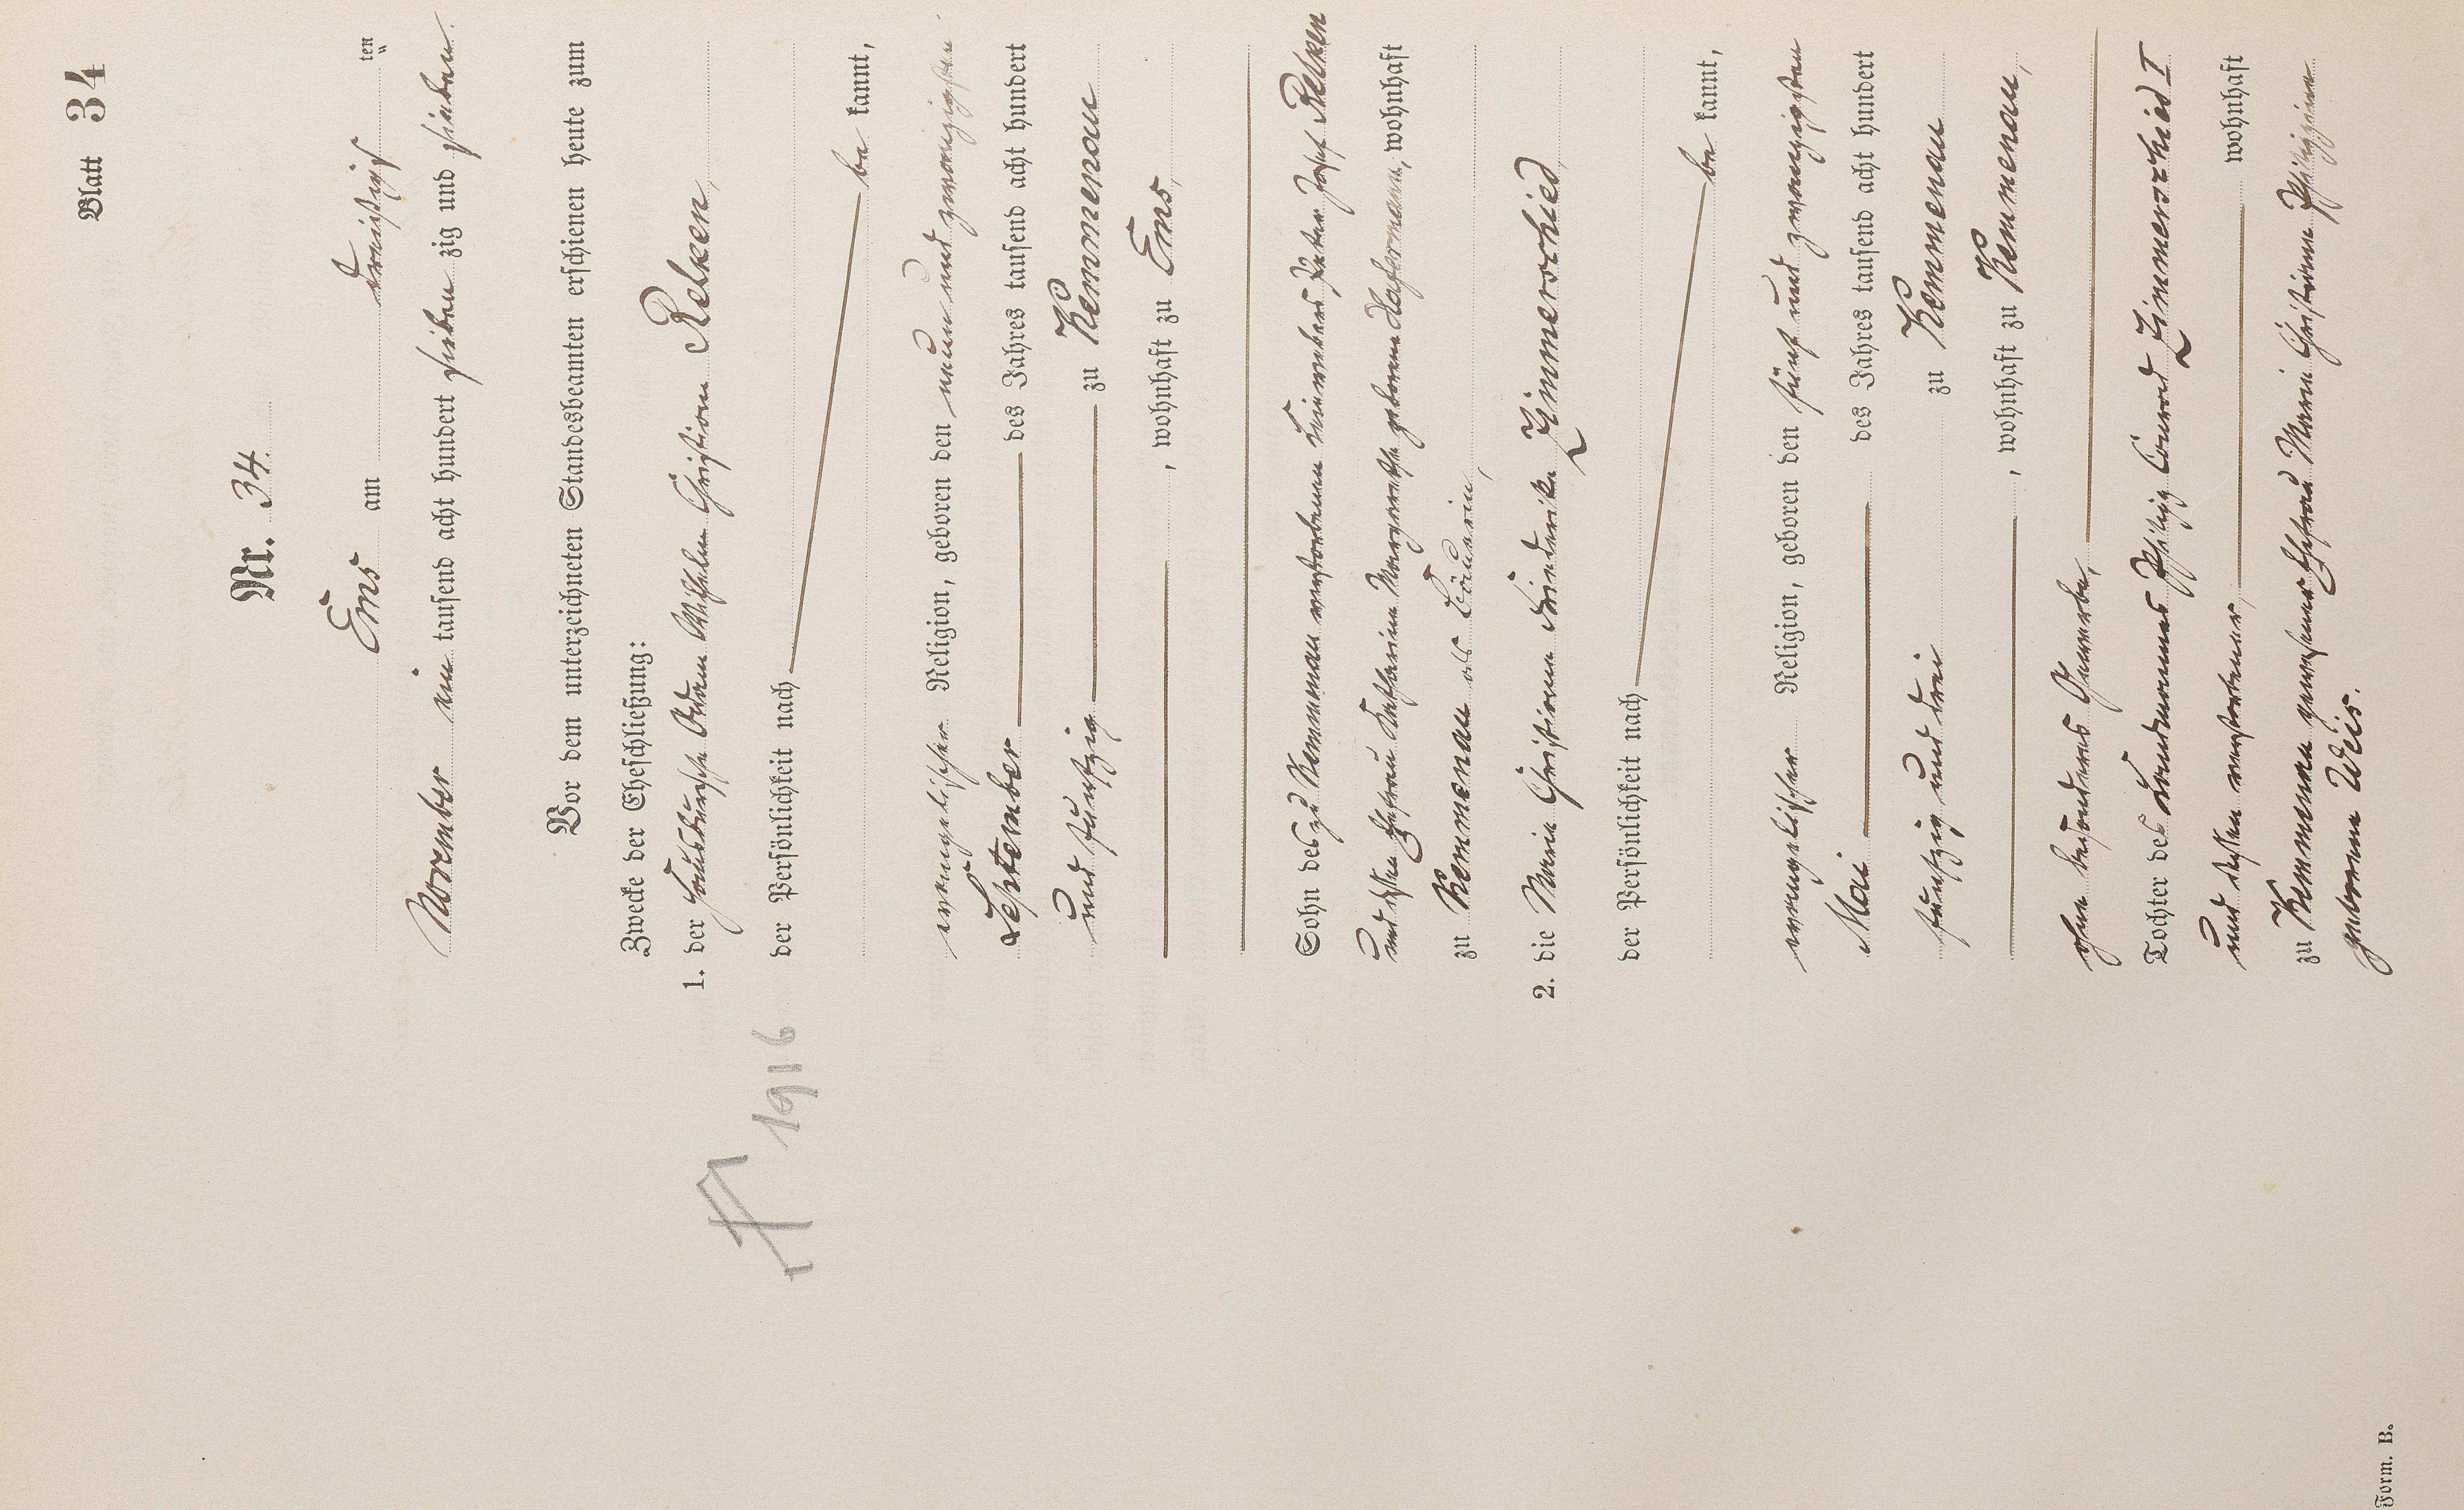 Blatt 34
Nr. 34.
Ems am dreißigsten
November ein tausend acht hundert sieben zig und sieben.
Vor dem unterzeichneten Standesbeamten erschienen heute zum
Zwecke der Eheschließung:
1. der Adam Wilhelm Christian Relken,
der Persönlichkeit nach
be kannt,
evangelischer Religion, geboren den neun und zwanzigsten
September des Jahres tausend acht hundert
und fünfzig zu Kemmenau
, wohnhaft zu Ems,
Sohn des zu Kemmenau verstorbenen Peter Josef Relken
und dessen Ehefrau Katharine Margarethe geborene, wohnhaft
zu Kemmenau als
2. die Marie Christiane Friederike Zimmerschied
der Persönlichkeit nach
be kannt,
evangelischer Religion, geboren den fünf und zwanzigsten
Mai des Jahres tausend acht hundert
fünfzig und drei zu Kemmenau
, wohnhaft zu Kemmenau,
ohne besonderes Gewerbe,
Tochter des Landmannes Philipp Conrad Zimmerschied I
und dessen verstorbener, wohnhaft
zu Kemmenau gewesener Ehefrau Marie Christiane Philippine
geborene Weis.
1916
Form. B.